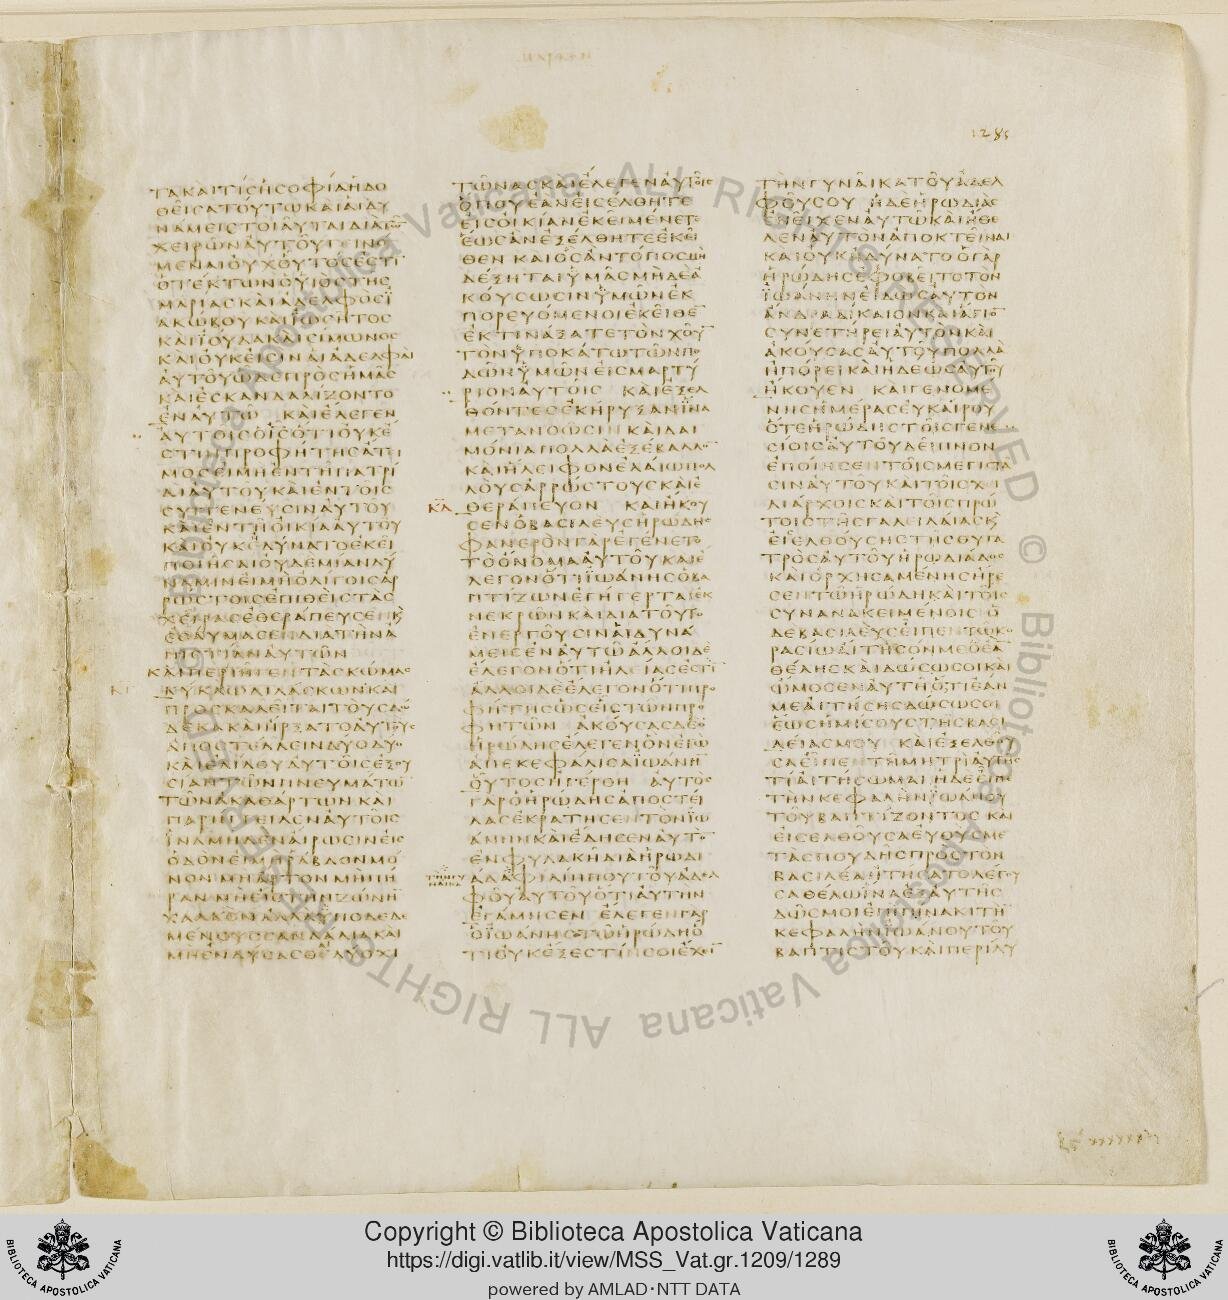 1285
ΤΑΚΑΙΤΙCΗCΟΦΙΑΗΔΟ
ΘΕΙCΑΤΟΥΤΩΚΑΙΑΙΔΥ
ΝΑΜΕΙCΤΟΙΑΥΤΑΙΔΙΑΤΩ
ΧΕΙΡΩΝΑΥΤΟΥΓΕΙΝΟ
ΜΕΝΑΙΟΥΧΟΥΤΟCΕCΤΙ
ΟΤΕΚΤΩΝΟΥΙΟCΤΗC
ΜΑΡΙΑCΚΑΙΑΔΕΛΦΟCΪ
ΑΚΩΒΟΥΚΑΙΙΩCΗΤΟC
ΚΑΙΪΟΥΔΑΚΑΙCΙΜΩΝΟC
ΚΑΙΟΥΚΕΙCΙΝΑΙΑΔΕΛΦΑΙ
ΑΥΤΟΥΩΔΕΠΡΟCΗΜΑC
ΚΑΙΕCΚΑΝΔΑΛΙΖΟΝΤΟ
ΕΝΑΥΤΩ ΚΑΙΕΛΕΓΕΝ
ΑΥΤΟΙCΟΙCΟΤΙΟΥΚΕ
CΤΙΠΡΟΦΗΤΗCΑΤΙ
ΜΟCΕΙΜΗΕΝΤΗΠΑΤΡΙ
ΔΙΑΥΤΟΥΚΑΙΕΝΤΟΙC
CΥΓΓΕΝΕΥCΙΝΑΥΤΟΥ
ΚΑΙΕΝΤΗΟΙΚΙΑΑΥΤΟΥ
ΚΑΙΟΥΚΕΔΥΝΑΤΟΕΚΕΙ
ΠΟΙΗCΑΙΟΥΔΕΜΙΑΝΔΥ
ΝΑΜΙΝΕΙΜΗΟΛΙΓΟΙCΑΡ
ΡΩCΤΟΙCΕΠΙΘΕΙCΤΑC
ΧΕΙΡΑCΕΘΕΡΑΠΕΥCΕΝΚ
ΕΘΑΥΜΑCΕΝΔΙΑΤΗΝΑ
ΠΙCΤΙΑΝΑΥΤΩΝ
ΚΑΙΠΕΡΙΗΓΕΝΤΑCΚΩΜΑC
ΚΥΚΛΩΔΙΔΑCΚΩΝΚΑΙ
ΠΡΟCΚΑΛΕΙΤΑΙΤΟΥCΔΩ
ΔΕΚΑΚΑΙΗΡΞΑΤΟΑΥΤΟΥC
ΑΠΟCΤΕΛΛΕΙΝΔΥΟΔΥΟ
ΚΑΙΕΔΙΔΟΥΑΥΤΟΙCΕΞΟΥ
CΙΑΝΤΩΝΠΝΕΥΜΑΤΩ
ΤΩΝΑΚΑΘΑΡΤΩΝΚΑΙ
ΠΑΡΗΓΓΕΙΛΕΝΑΥΤΟΙC
ΪΝΑΜΗΔΕΝΑΙΡΩCΙΝΕΙC
ΟΔΟΝΕΙΜΗΡΑΒΔΟΝΜΟ
ΝΟΝΜΗΑΡΤΟΝΜΗΠΗ
ΡΑΝΜΗΕΙCΤΗΝΖΩΝΗ
ΧΑΛΚΟΝΑΛΛΑΥΠΟΔΕΔΕ
ΜΕΝΟΥCCΑΝΔΑΛΙΑΚΑΙ
ΜΗΕΝΔΥCΑCΘΕΔΥΟΧΙ
ΤΩΝΑCΚΑΙΕΛΕΓΕΝΑΥΤΟΙC
ΟΠΟΥΕΑΝΕΙCΕΛΘΗΤΕ
ΕΙCΟΙΚΙΑΝΕΚΕΙΜΕΝΕΤΕ
ΕΩCΑΝΕΞΕΛΘΗΤΕΕΚΕΙ
ΘΕΝ ΚΑΙΟCΑΝΤΟΠΟCΜΗ
ΔΕΞΗΤΑΙΥΜΑCΜΗΔΕΑ
ΚΟΥCΩCΙΝΫΜΩΝΕΚ
ΠΟΡΕΥΟΜΕΝΟΙΕΚΕΙΘΕ
ΕΚΤΙΝΑΞΑΤΕΤΟΝΧΟΥ
ΤΟΝΫΠΟΚΑΤΩΤΩΝΠΟ
ΔΩΝΫΜΩΝΕΙCΜΑΡΤΥ
ΡΙΟΝΑΥΤΟΙC ΚΑΙΕΞΕΛ
ΘΟΝΤΕCΕΚΗΡΥΞΑΝΪΝΑ
ΜΕΤΑΝΟΩCΙΝ ΚΑΙΔΑΙ
ΜΟΝΙΑΠΟΛΛΑΕΞΕΒΑΛΛΟ
ΚΑΙΗΛΕΙΦΟΝΕΛΑΙΩΠΟΛ
ΛΟΥCΑΡΡΩCΤΟΥCΚΑΙΕ
ΘΕΡΑΠΕΥΟΝ ΚΑΙΗΚΟΥ
CΕΝΟΒΑCΙΛΕΥCΗΡΩΔΗC
ΦΑΝΕΡΟΝΓΑΡΕΓΕΝΕΤΟ
ΤΟΟΝΟΜΑΑΥΤΟΥΚΑΙΕ
ΛΕΓΟΝΟΤΙΪΩΑΝΗCΟΒΑ
ΠΤΙΖΩΝΕΓΗΓΕΡΤΑΙΕΚ
ΝΕΚΡΩΝΚΑΙΔΙΑΤΟΥΤΟ
ΕΝΕΡΓΟΥCΙΝΑΙΔΥΝΑ
ΜΕΙCΕΝΑΥΤΩΑΛΛΟΙΔΕ
ΕΛΕΓΟΝΟΤΙΗΛΕΙΑCΕCΤΙ
ΑΛΛΟΙΔΕΕΛΕΓΟΝΟΤΙΠΡΟ
ΦΗΤΗCΩCΕΙCΤΩΝΠΡΟ
ΦΗΤΩΝ ΑΚΟΥCΑCΔΕΟ
ΗΡΩΔΗCΕΛΕΓΕΝΟΝΕΓΩ
ΑΠΕΚΕΦΑΛΙCΑΪΩΑΝΗ
ΟΥΤΟCΗΓΕΡΘΗ ΑΥΤΟC
ΓΑΡΟΗΡΩΔΗCΑΠΟCΤΕΙ
ΛΑCΕΚΡΑΤΗCΕΝΤΟΝΪΩ
ΑΝΗΝΚΑΙΕΔΗCΕΝΑΥΤΟ
ΕΝΦΥΛΑΚΗΔΙΑΗΡΩΔΙ
ΤΗΝΓΥ
ΝΑΙΚΑ
ΑΔΑΦΙΛΙΠΠΟΥΤΟΥΑΔΕΛ
ΦΟΥΑΥΤΟΥΟΤΙΑΥΤΗΝ
ΕΓΑΜΗCΕΝ ΕΛΕΓΕΝΓΑΡ
ΟΪΩΑΝΗCΤΩΗΡΩΔΗΟ
ΤΙΟΥΚΕΞΕCΤΙΝCΟΙΕΧΕΙ
ΤΗΝΓΥΝΑΙΚΑΤΟΥΑΔΕΛ
ΦΟΥCΟΥ ΗΔΕΗΡΩΔΙΑC
ΕΝΕΙΧΕΝΑΥΤΩΚΑΙΗΘΕ
ΛΕΝΑΥΤΟΝΑΠΟΚΤΕΙΝΑΙ
ΚΑΙΟΥΚΗΔΥΝΑΤΟΟΓΑΡ
ΗΡΩΔΗCΕΦΟΒΕΙΤΟΤΟΝ
ΪΩΑΝΗΝΕΙΔΩCΑΥΤΟΝ
ΑΝΔΡΑΔΙΚΑΙΟΝΚΑΙΑΓΙΟ
CΥΝΕΤΗΡΕΙΑΥΤΟΝΚΑΙ
ΑΚΟΥCΑCΑΥΤΟΥΠΟΛΛΑ
ΗΠΟΡΕΙΚΑΙΗΔΕΩCΑΥΤΟΥ
ΗΚΟΥΕΝ ΚΑΙΓΕΝΟΜΕ
ΝΗCΗΜΕΡΑCΕΥΚΑΙΡΟΥ
ΟΤΕΗΡΩΔΗCΤΟΙCΓΕΝΕ
CΙΟΙCΑΥΤΟΥΔΕΙΠΝΟΝ
ΕΠΟΙΗCΕΝΤΟΙCΜΕΓΙCΤΑ
CΙΝΑΥΤΟΥΚΑΙΤΟΙCΧΙ
ΛΙΑΡΧΟΙCΚΑΙΤΟΙCΠΡΩ
ΤΟΙCΤΗCΓΑΛΕΙΛΑΙΑCΚ
ΕΙCΕΛΘΟΥCΗCΤΗCΘΥΓΑ
ΤΡΟCΑΥΤΟΥΗΡΩΔΙΑΔΟC
ΚΑΙΟΡΧΗCΑΜΕΝΗCΗΡΕ
CΕΝΤΩΗΡΩΔΗΚΑΙΤΟΙC
CΥΝΑΝΑΚΕΙΜΕΝΟΙC Ο
ΔΕΒΑCΙΛΕΥCΕΙΠΕΝΤΩΚΟ
ΡΑCΙΩΑΙΤΗCΟΝΜΕΟΕΑ
ΘΕΛΗCΚΑΙΔΩCΩCΟΙΚΑΙ
ΩΜΟCΕΝΑΥΤΗΟΤΙΕΑΝ
ΜΕΑΙΤΗCΗCΔΩCΩCΟΙ
ΕΩCΗΜΙCΟΥCΤΗCΒΑCΙ
ΛΕΙΑCΜΟΥ ΚΑΙΕΞΕΛΘΟΥ
CΑΕΙΠΕΝΤΗΜΗΤΡΙΑΥΤΗC
ΤΙΑΙΤΗCΩΜΑΙΗΔΕΕΙΠΕ
ΤΗΝΚΕΦΑΛΗΝΪΩΑΝΟΥ
ΤΟΥΒΑΠΤΙΖΟΝΤΟC ΚΑΙ
ΕΙCΕΛΘΟΥCΑΕΥΘΥCΜΕ
ΤΑCΠΟΥΔΗCΠΡΟCΤΟΝ
ΒΑCΙΛΕΑΗΤΗCΑΤΟΛΕΓΟΥ
CΑΘΕΛΩΪΝΑΕΞΑΥΤΗC
ΔΩCΜΟΙΕΠΙΠΙΝΑΚΙΤΗ
ΚΕΦΑΛΗΝΪΩΑΝΟΥΤΟΥ
ΒΑΠΤΙCΤΟΥΚΑΙΠΕΡΙΛΥ
Copyright © Biblioteca Apostolica Vaticana
https://digi.vatlib.it/view/MSS_Vat.gr.1209/1289
powered by AMLAD·NTT DATA